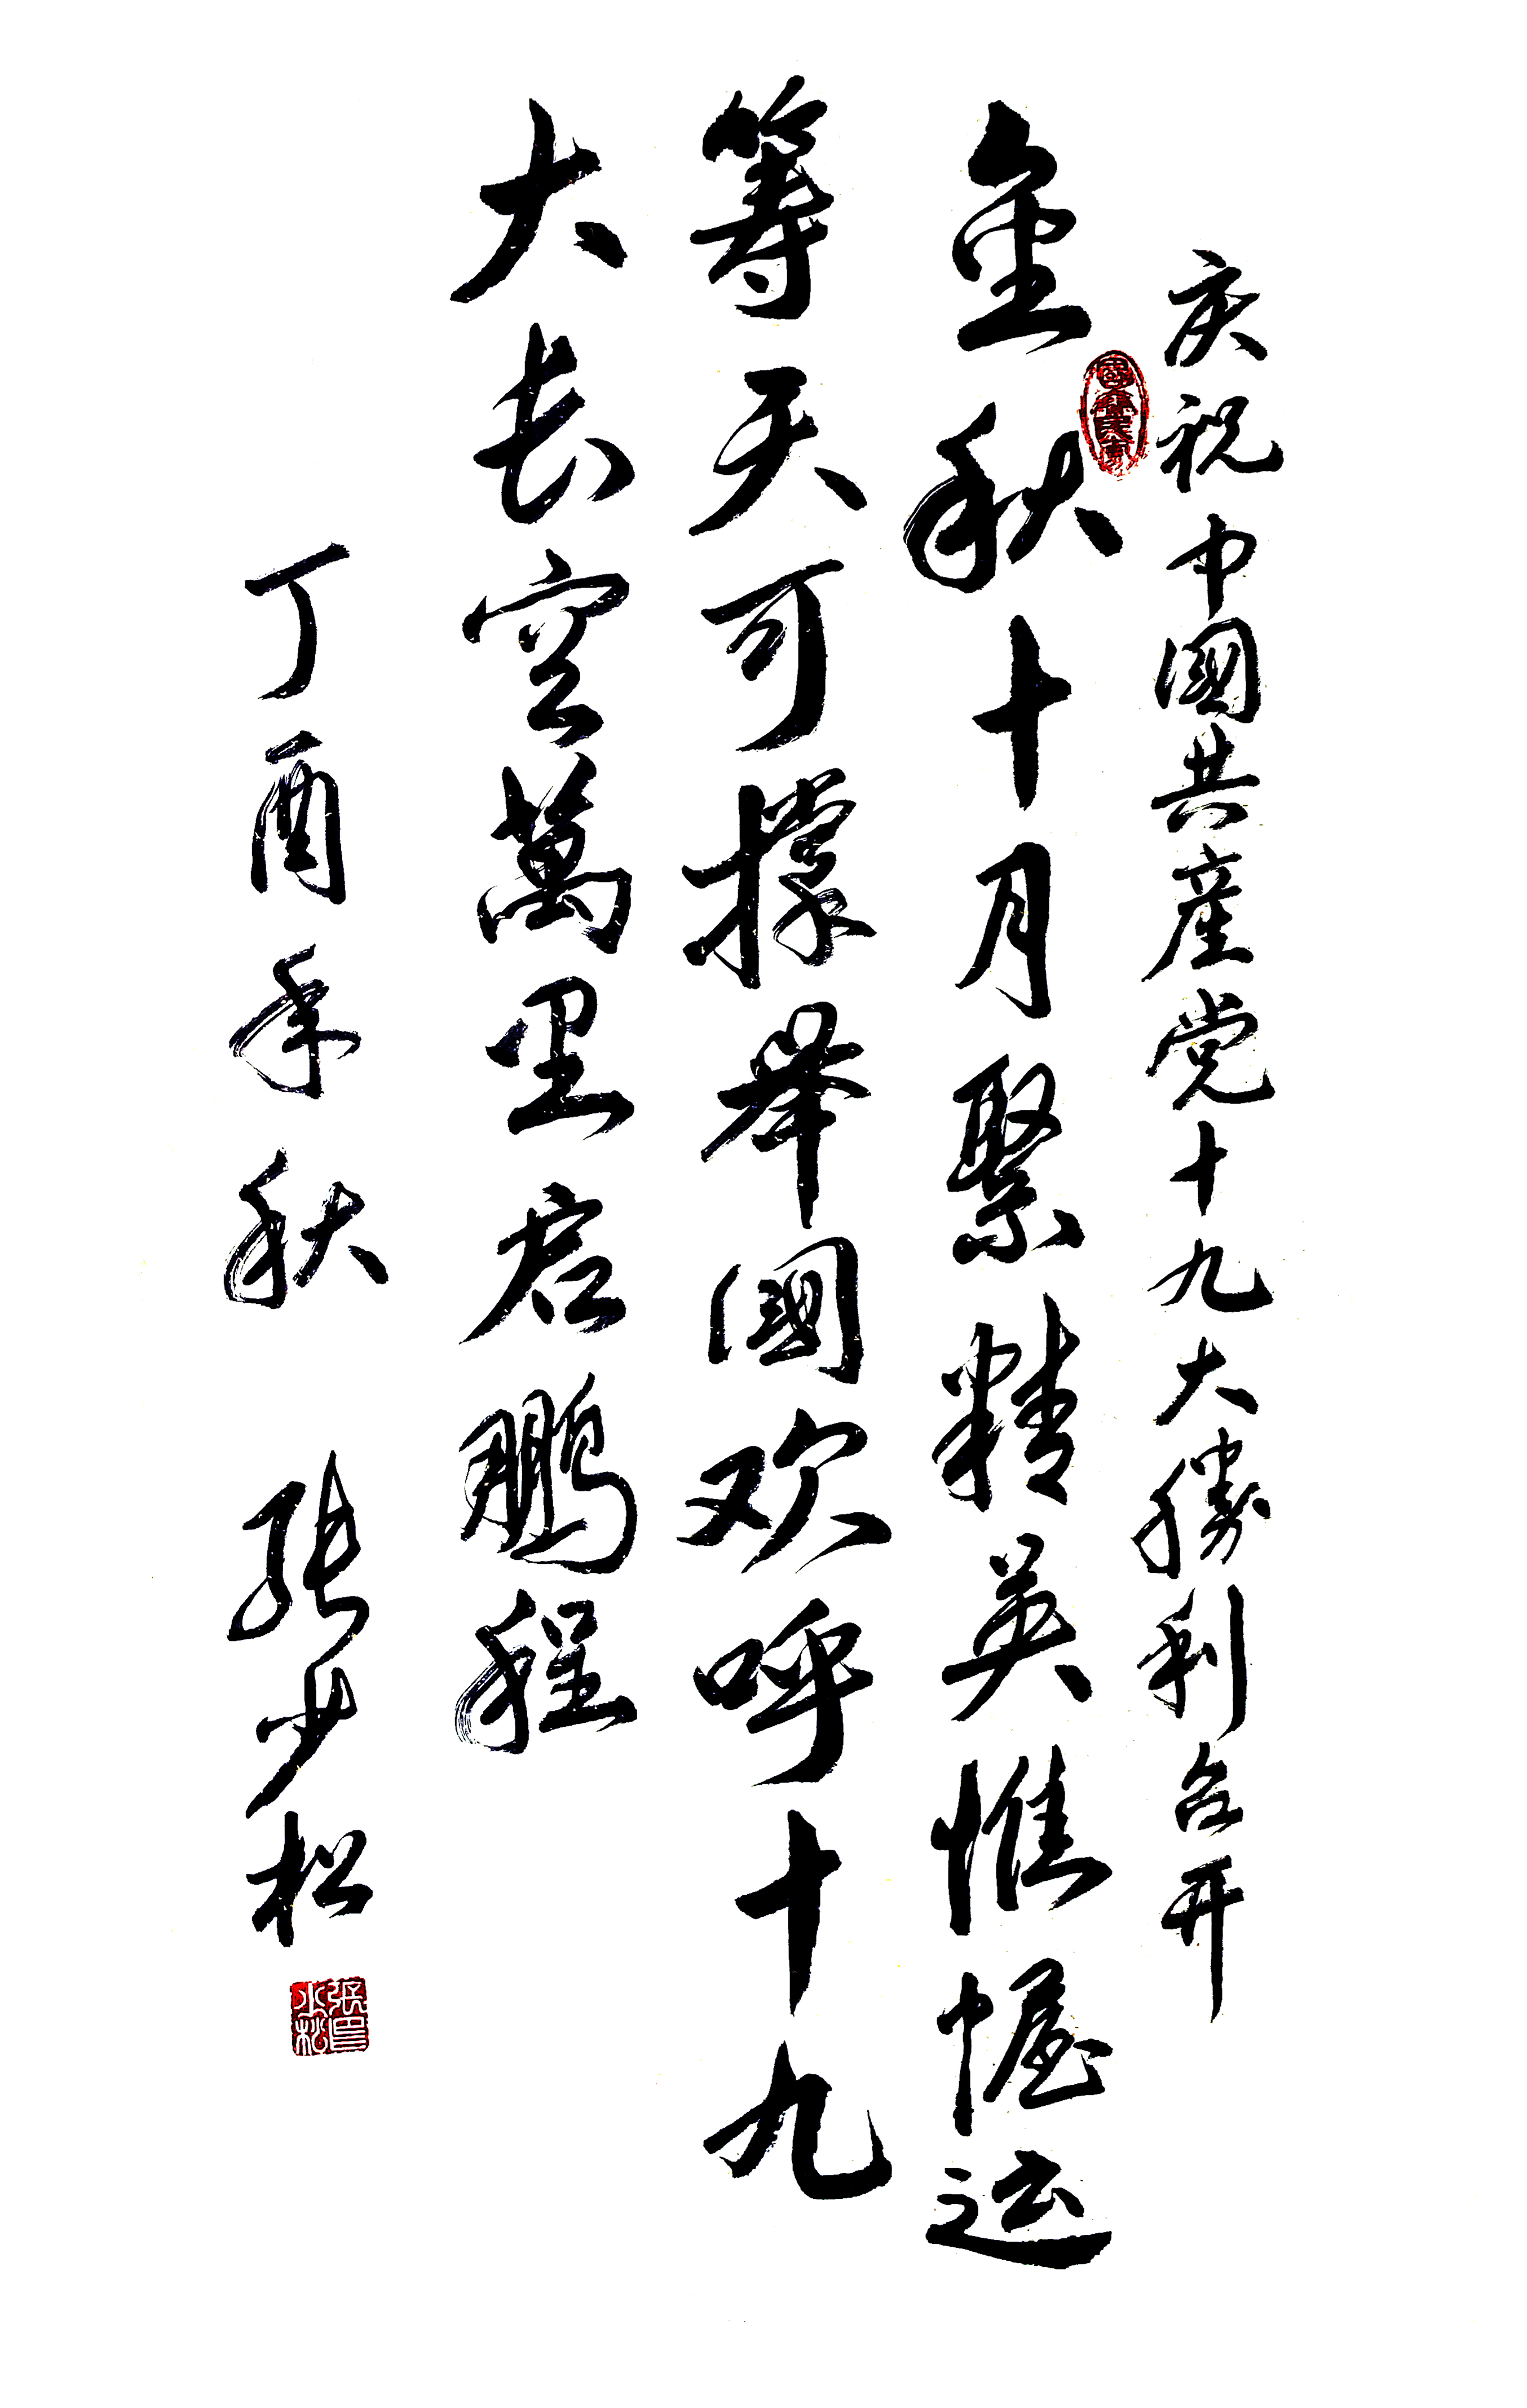 庆祝中國共産党十九大勝利召开
金秋十月聚精英惟幄运
筹天可撑举國欢呼十九
大长空萬里启鹏程
丁酉年秋 张少松
張印少松